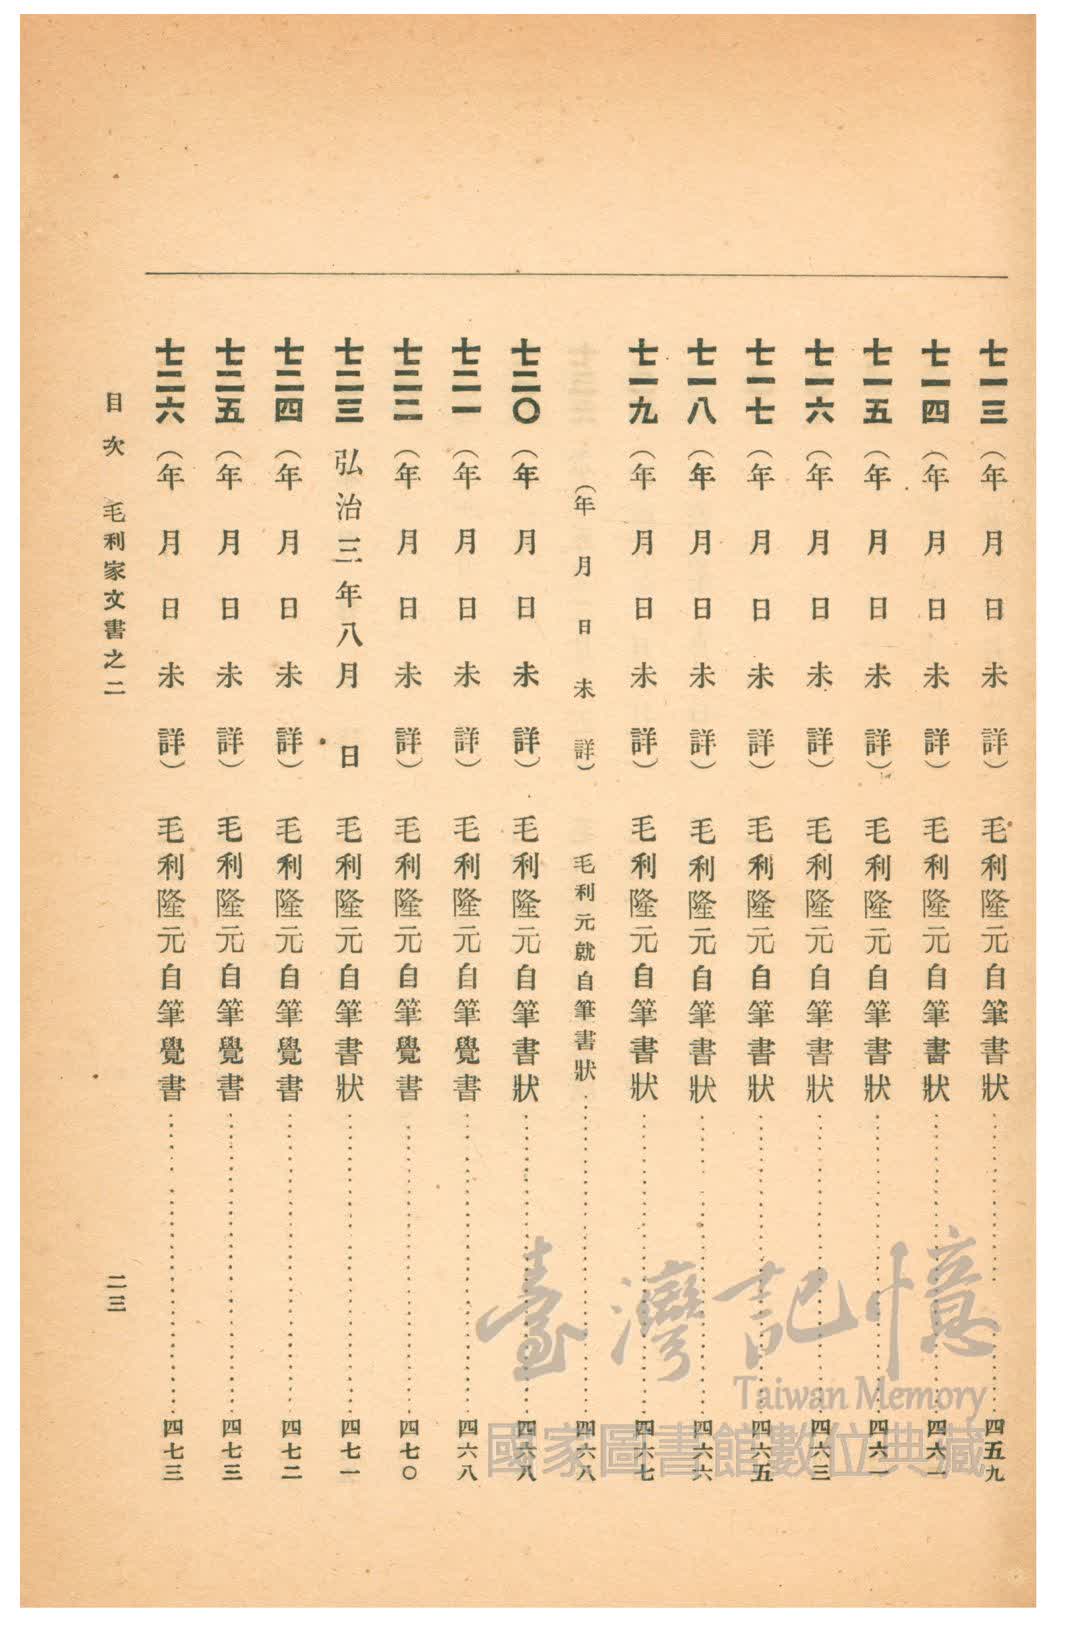 七一三（年月日未詳）毛利隆元自筆書狀……四五九
七一四（年月日未詳）毛利隆元自筆書狀……四六一
七一五（年月日未詳）毛利隆元自筆書狀……四六一
七一六（年月日未詳）毛利隆元自筆書狀……四六三
七一七（年月日未詳）毛利隆元自筆書狀……四六五
七一八（年月日未詳）毛利隆元自筆書狀……四六六
七一九（年月日未詳）毛利隆元自筆書狀……四六七
（年月日未詳）毛利元就自筆書狀……四六八
七二〇（年月日未詳）毛利隆元自筆書狀……四六八
七二一（年月日未詳）毛利隆元自筆覺書……四六八
七二二（年月日未詳）毛利隆元自筆覺書……四七〇
七二三 弘治三年八月日 毛利隆元自筆書狀……四七一
七二四（年月日未詳）毛利隆元自筆覺書……四七二
七二五（年月日未詳）毛利隆元自筆覺書……四七三
七二六（年月日未詳）毛利隆元自筆覺書……四七三
目次 毛利家文書之二 二三
臺灣記憶
Taiwan Memory
國家圖書館數位典藏